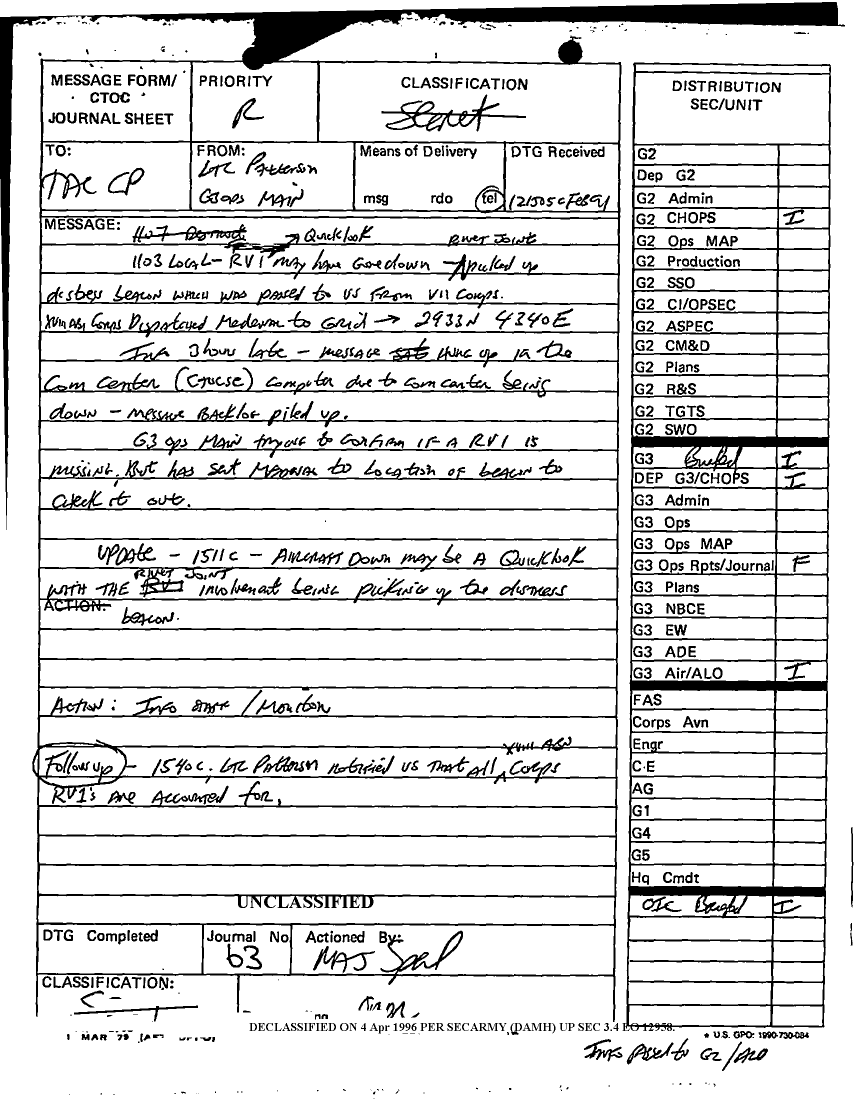 MESSAGE FORM/
CTOC
JOURNAL SHEET
PRIORITY
R
CLASSIFICATION
Secret
TO:
TAC CP
FROM:
LTC Patterson
G3 OPS MAIN
Means of Delivery
msg rdo tel
DTG Received
121505CFEB91
MESSAGE:
1107
→ Quicklook
RIVET JOINT
1103 LOCAL - RV1 may have gone down - picked up
distress beacon which was passed to us from VII Corps.
XVIII ABN Corps Dispatched Medevac to Grid → 2933N 4340E
Info 3 hours late - message hung up in the
Com Center computer due to com center being
down - message backlog piled up.
G3 ops MAIN trying to confirm if a RV1 is
missing, But has sent MEDEVAC to location of beacon to
check it out.
UPDATE - 1511C - AIRCRAFT DOWN may be a Quicklook
RIVET JOINT
WITH THE RV1 involvement being picking up the distress
ACTION:
beacon.
Action: Info staff / Monitor
XVIII ABN
Follow up - 1540C, LTC Patterson notified us that all Corps
RV1's are accounted for.
UNCLASSIFIED
DTG Completed
Journal No
63
Actioned By:
MAJ
CLASSIFICATION:
DECLASSIFIED ON 4 Apr 1996 PER SECARMY (DAMH) UP SEC 3.4 EO 12958.
1 MAR 79
DISTRIBUTION
SEC/UNIT
G2
Dep G2
G2 Admin
G2 CHOPS I
G2 Ops MAP
G2 Production
G2 SSO
G2 CI/OPSEC
G2 ASPEC
G2 CM&D
G2 Plans
G2 R&S
G2 TGTS
G2 SWO
G3 Briefed I
DEP G3/CHOPS I
G3 Admin
G3 Ops
G3 Ops MAP
G3 Ops Rpts/Journal F
G3 Plans
G3 NBCE
G3 EW
G3 ADE
G3 Air/ALO I
FAS
Corps Avn
Engr
C-E
AG
G1
G4
G5
Hq Cmdt
OIC Briefed I
★ U.S. GPO: 1990-730-084
Info passed to G2/ALO